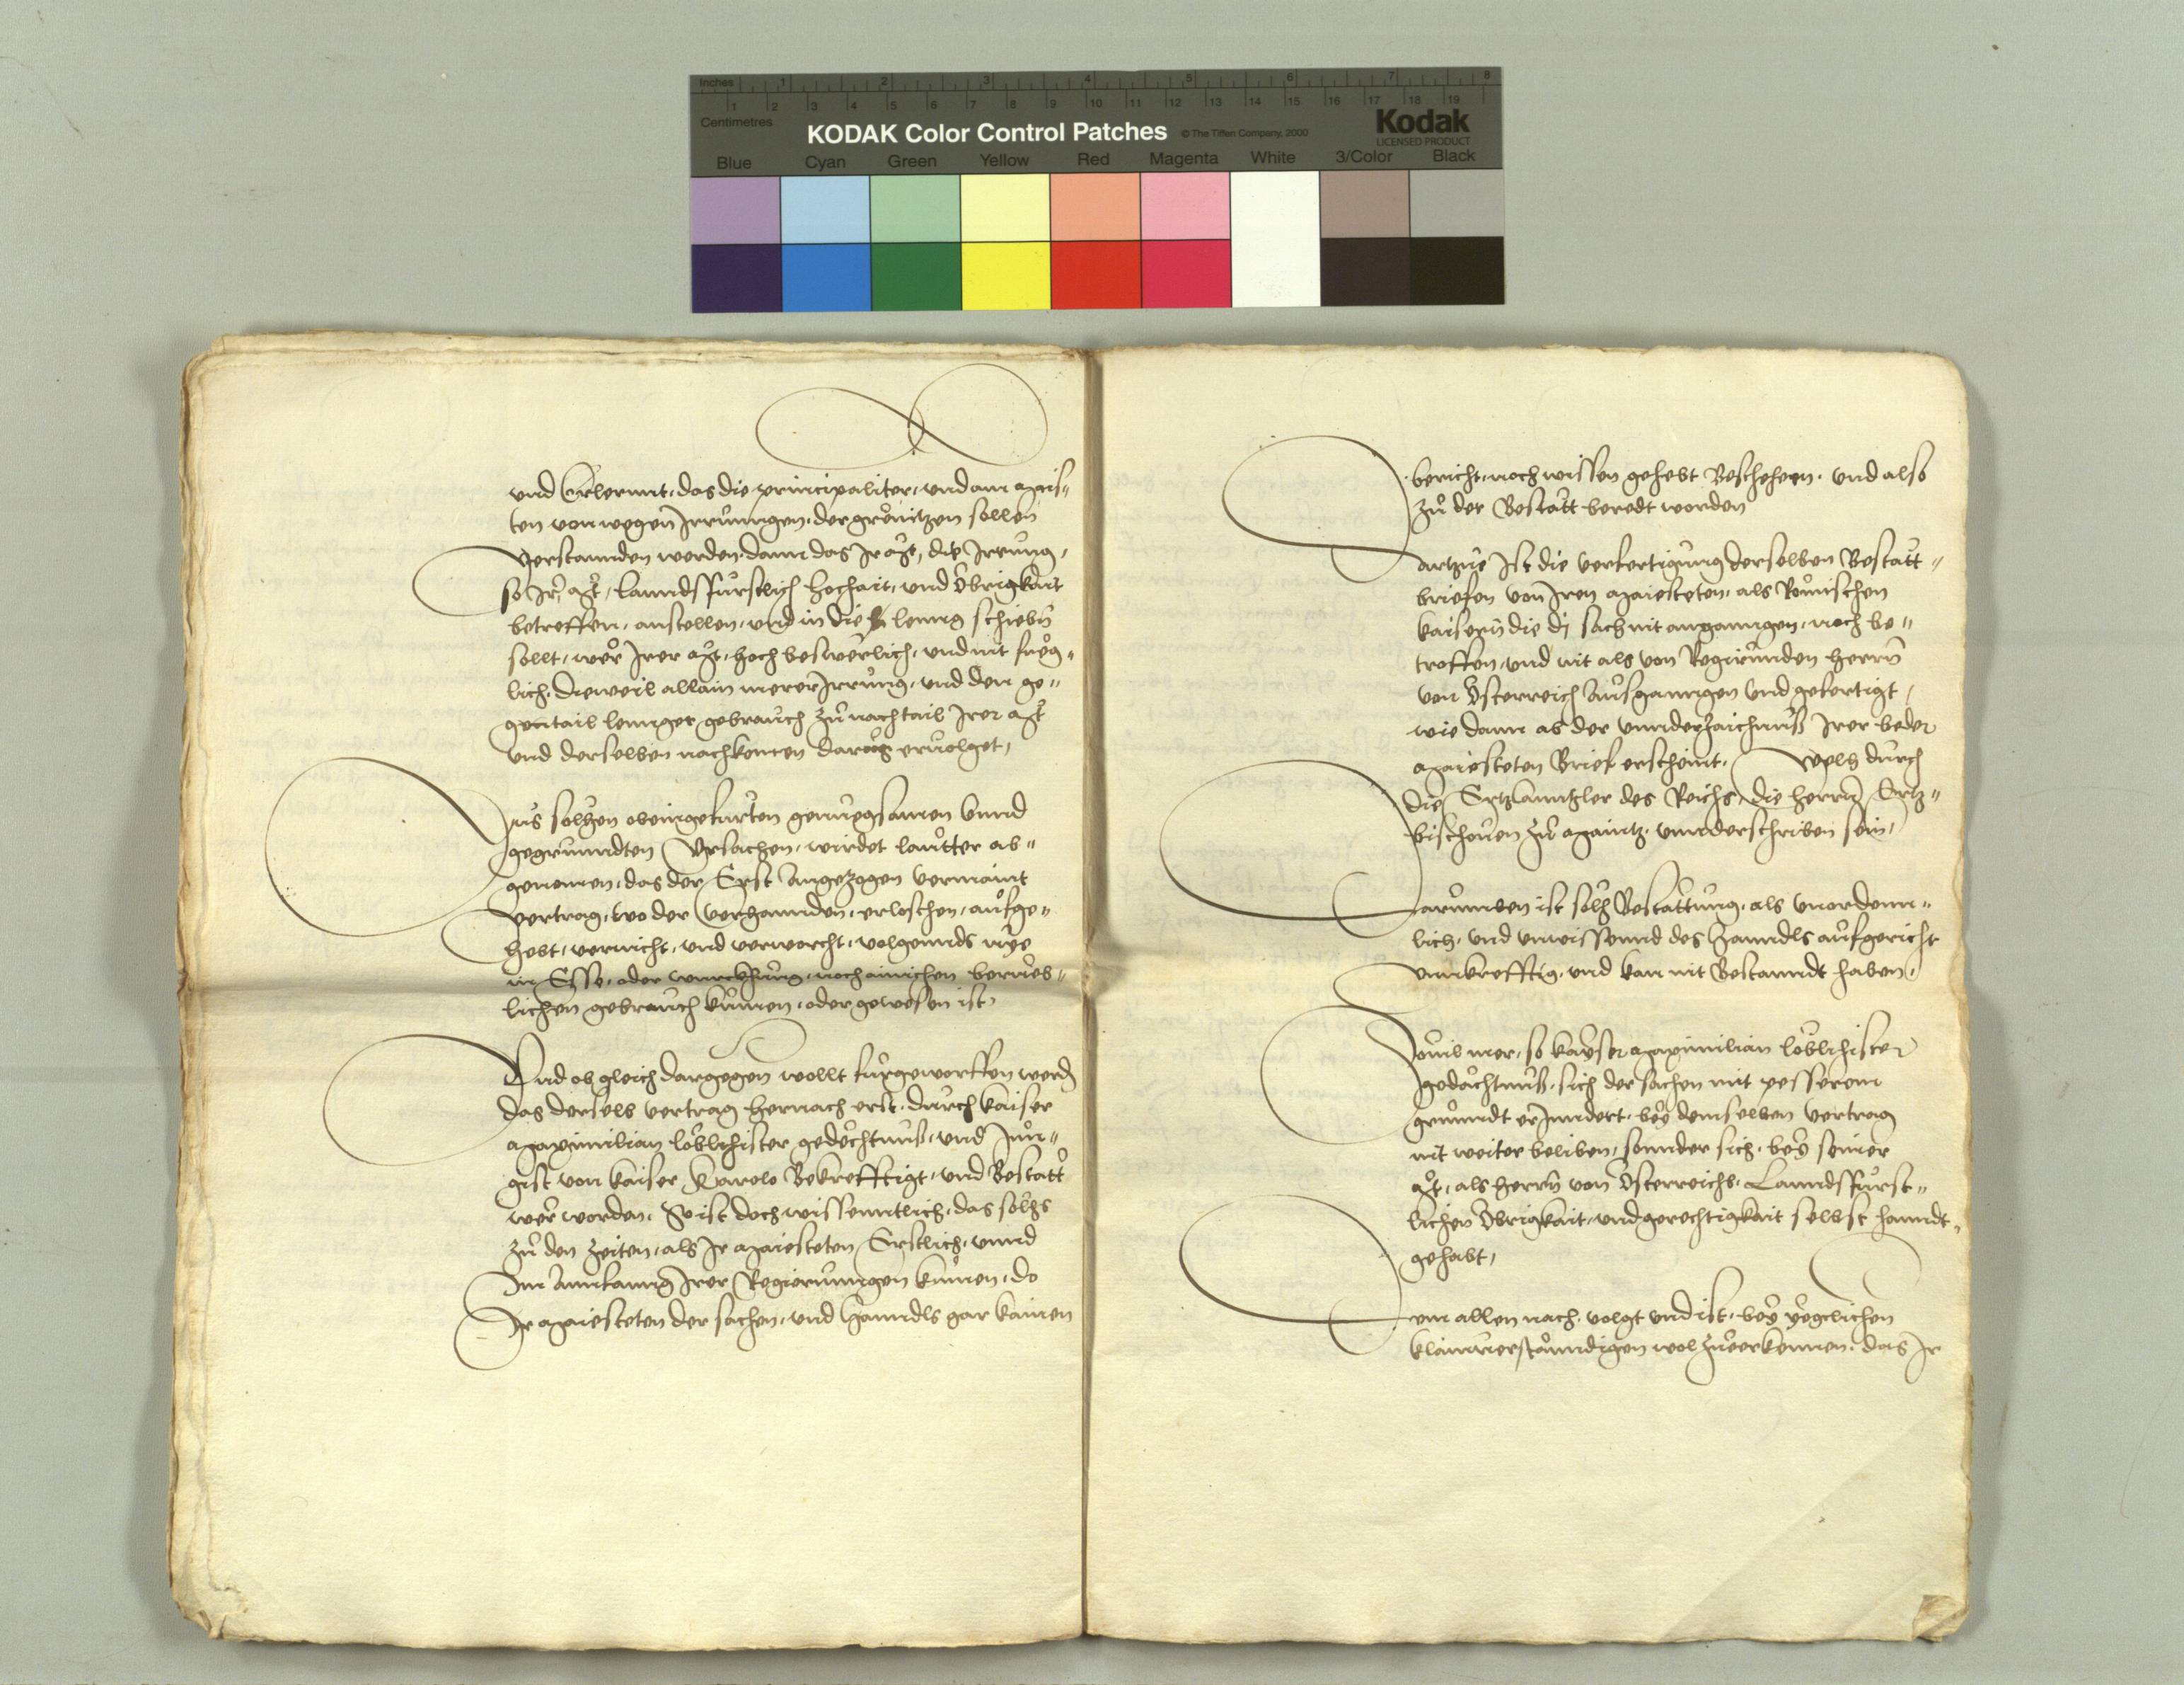 Inches 1 2 3 4 5 6 7 8
Centimetres 1 2 3 4 5 6 7 8 9 10 11 12 13 14 15 16 17 18 19
KODAK Color Control Patches © The Tiffen Company, 2000 Kodak
LICENSED PRODUCT
Blue Cyan Green Yellow Red Magenta White 3/Color Black
vnd Erlernnt, das die principaliter, vnd am mais„
ten von wegen Irrungen, der grenitzen sollen
verstannden werden, dann das Ir Mt, die Irrung,
so Ir Mt, lanndsfürstlich hochait, vnd Obrigkait
betreffen, anstellen, vnd in die leng schiebn
sollt, wer Irer Mt, hoch beswerlich, vnd nit fueg„
lich, dieweil allain merer Irrung, vnd den ge„
gentail lennger gebrauch zu nachtail Irer Mt
vnd derselben nachkomen daraus ervolget,
Aus solhen obeingefurten genuegsamen vnnd
gegrundten Vrsachen, wirdet lautter ab„
genomen, das der Erst angezogen vermaint
vertrag, wo der verhannden, erloschen, aufge„
hebt, vernicht, vnd verworcht, volgennds nye
in Esse, oder wurckhung, noch ainichen bernueb„
lichen gebrauch kumen, oder gewesen ist,
Vnd ob gleich dargegen wollt furgeworffen werd
das derselb vertrag hernach erst, durch kaiser
Maximilian loblichister gedechtnuss, vnd Jun„
gist von kaiser Karolo Bekrefftigt, vnd Bestatt
wer worden, So ist doch wissenntlich, das solhs
zu den zeiten, als Ir Maiesteten Erstlich, vnnd
Im Annfanng Irer Regierungen kumen, do
Ir Maiesteten der sachen, vnd hanndls gar kainen
bericht, noch wissen gehebt Beschehen, vnd also
zu der Bestatt beredt worden
Dartzue Ist die verfertigung derselben Bestatt„
briefen von Iren Maiesteten, als Romischen
kaisern die di sach nit anganngen, noch be„
troffen, vnd nit als von Regirunden herrn
von Osterreich Ausganngen vnd gefertigt,
wie dann ab der vnnderzaichnuss Irer beder
Maiesteten Brief erscheint, Welh durch
die Ertzcanntzler des Reichs, die herrn Ertz„
bischouen zu Maintz, vnnderschriben sein,
Darumben ist solh Bestattung, als vnordenn„
lich, vnd vnwissennd des hanndls aufgericht
vnnkrefftig, vnd kan nit Bestanndt haben,
Souil mer, so kayser Maximilian loblichister
gedachtnuss, sich der sachen mit pesserem
grundt erInndert, bey demselben vertrag
nit weiter beliben, sonnder sich, bey seiner
Mt, als herrn von Osterreichs, Lanndsfurst„
lichen Obrigkait, vnd gerechtigkait selbst hanndt„
gehabt,
Dem allen nach, volgt vnd ist, bey yeglichen
klainverstanndigen wol zuerkennen, das Ir